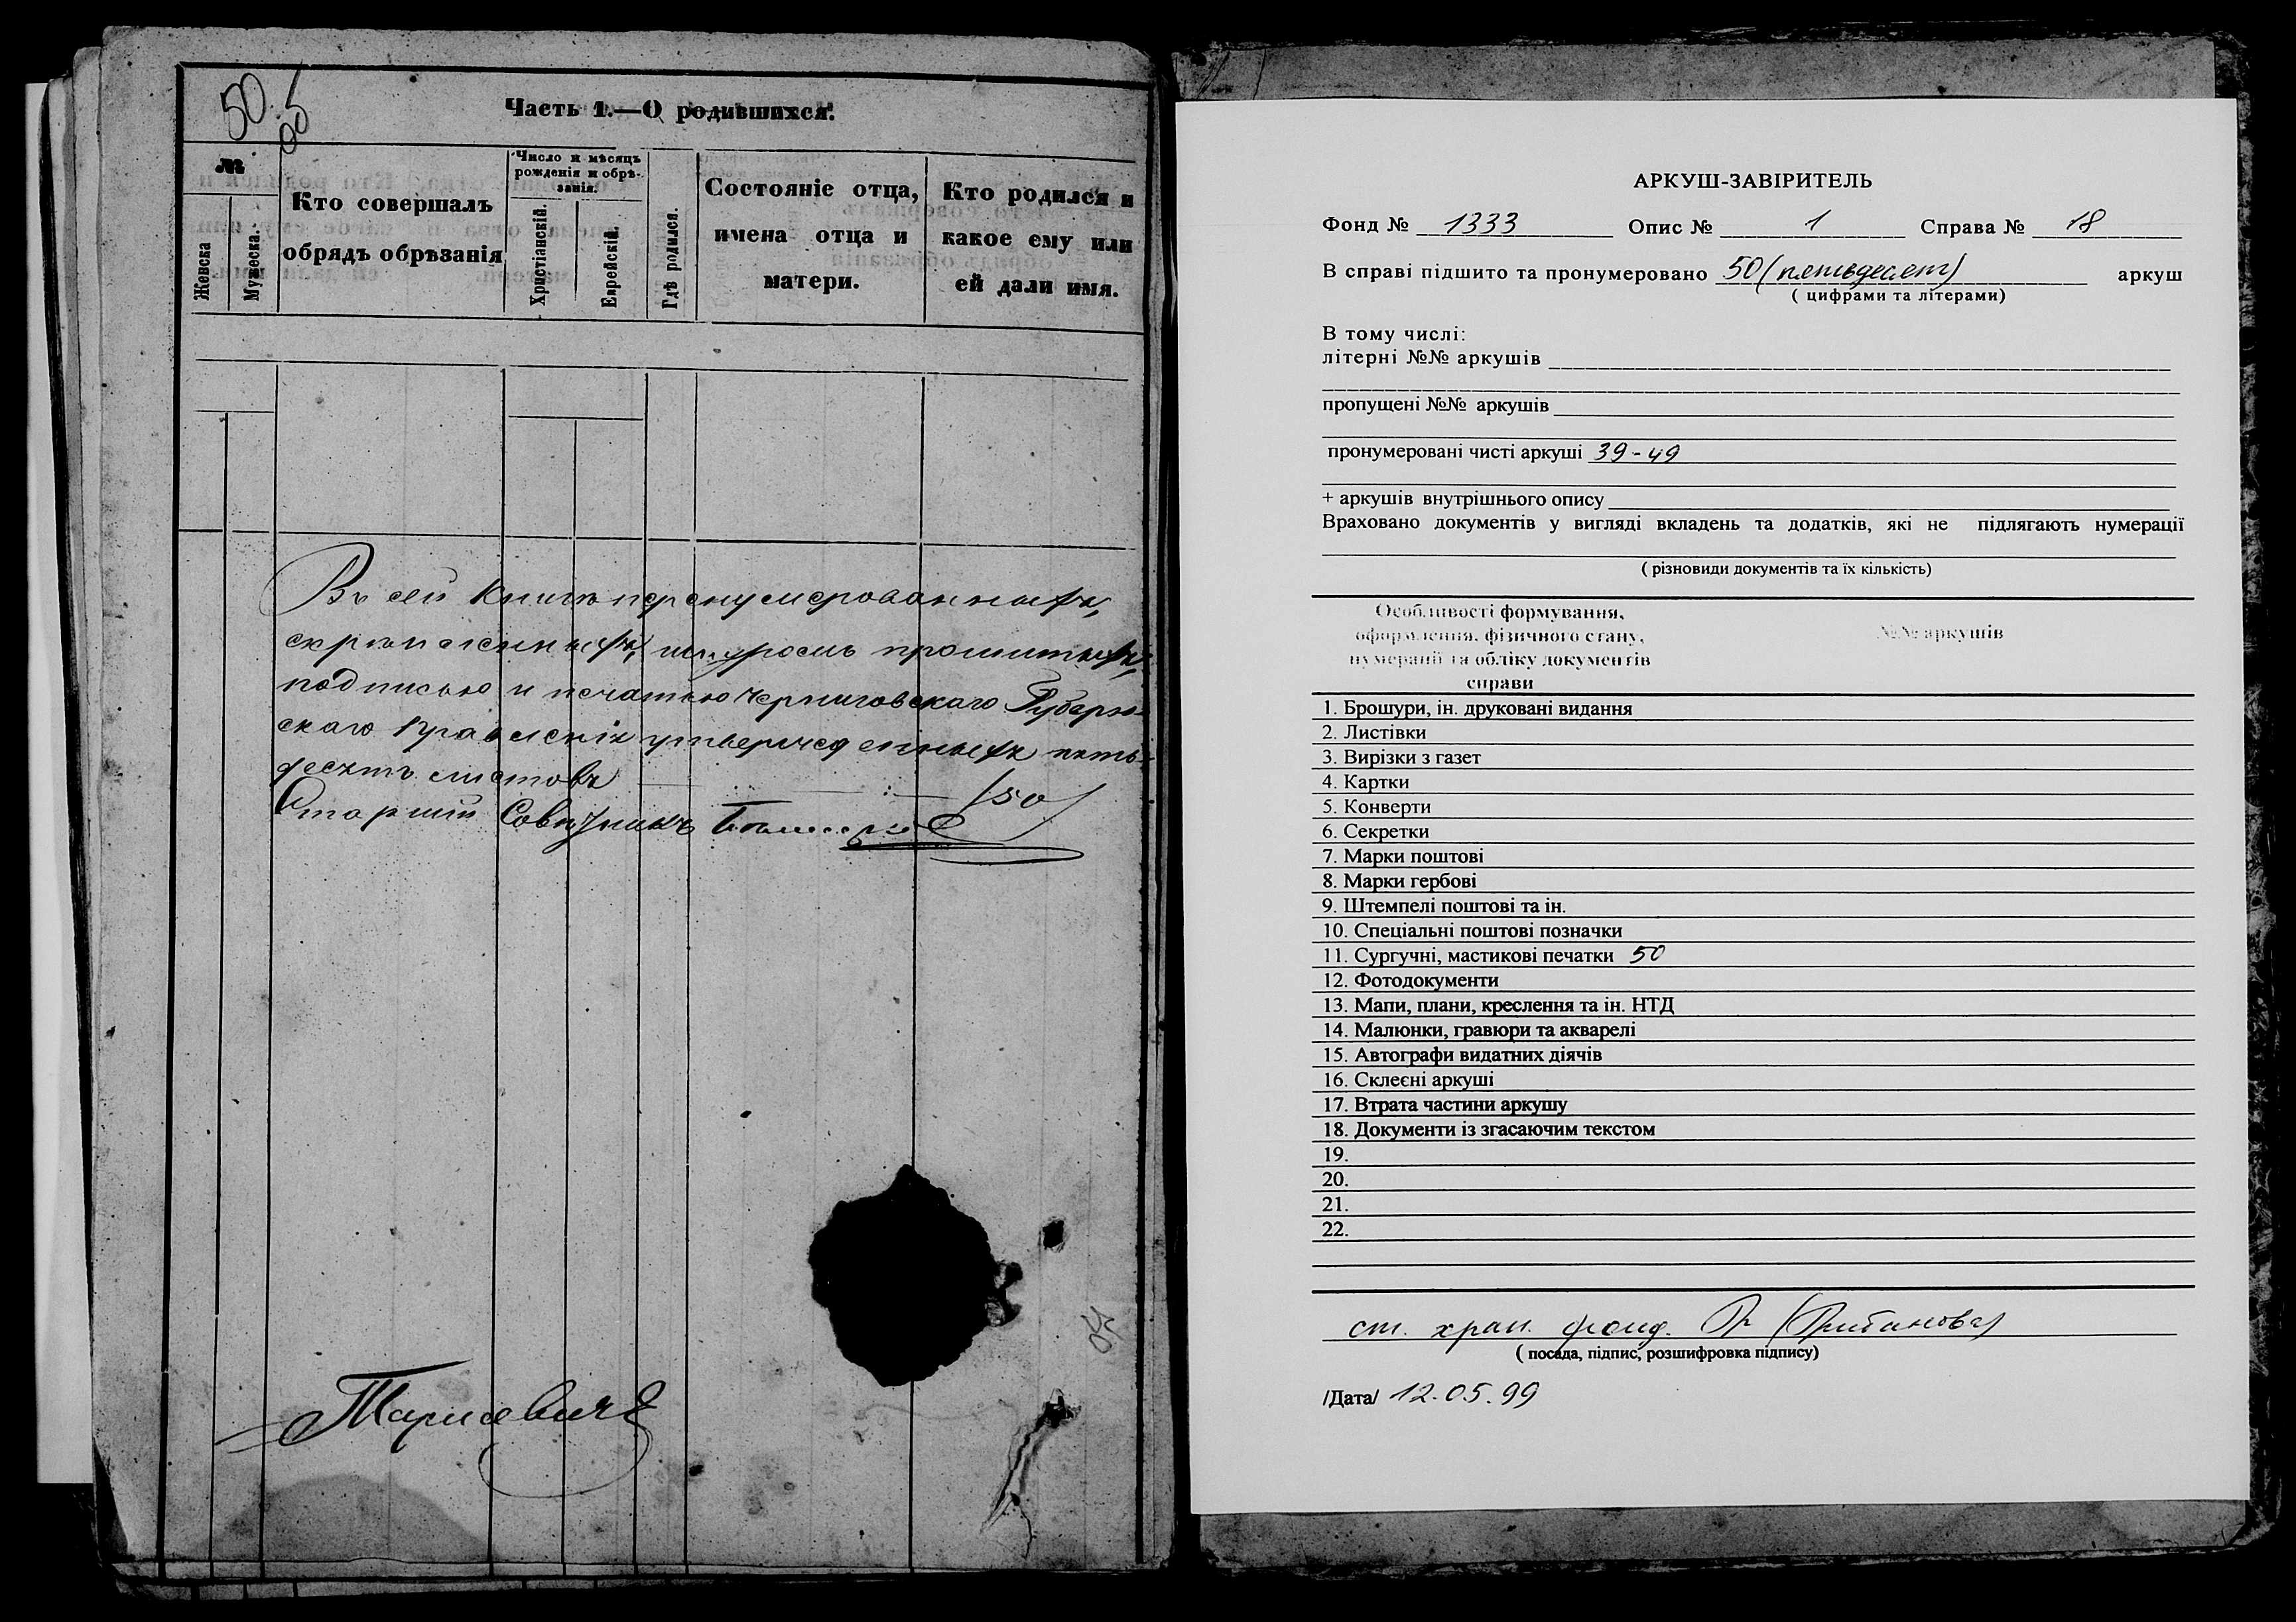 50
Часть 1.—О родившихся.
№
Женска
Мужеска.
Кто совершалъ
обрядъ обрѣзанія
Число и мѣсяцъ
рожденія и обрѣ-
занія.
Христіанскій.
Еврейскій.
Гдѣ родился.
Состояніе отца,
имена отца и
матери.
Кто родился и
какое ему или
ей дали имя.
Въ сей книгѣ перенумерованныхъ,
скрѣпленныхъ, шнуромъ прошитыхъ,
подписью и печатью Черниговскаго Губерн-
скаго Правленія утвержденныхъ пять-
десятъ листовъ
/50/
Старшій Совѣтникъ
АРКУШ-ЗАВІРИТЕЛЬ
Фонд № 1333 Опис № 1 Справа № 18
В справі підшито та пронумеровано 50 (пятьдесят) аркуш
( цифрами та літерами)
В тому числі:
літерні №№ аркушів
пропущені №№ аркушів
пронумеровані чисті аркуші 39-49
+ аркушів внутрішнього опису
Враховано документів у вигляді вкладень та додатків, які не підлягають нумерації
( різновиди документів та їх кількість)
Особливості формування,
оформлення, фізичного стану,
нумерації та обліку документів
справи
№№ аркушів
1. Брошури, ін. друковані видання
2. Листівки
3. Вирізки з газет
4. Картки
5. Конверти
6. Секретки
7. Марки поштові
8. Марки гербові
9. Штемпелі поштові та ін.
10. Спеціальні поштові позначки
11. Сургучні, мастикові печатки 50
12. Фотодокументи
13. Мапи, плани, креслення та ін. НТД
14. Малюнки, гравюри та акварелі
15. Автографи видатних діячів
16. Склеєні аркуші
17. Втрата частини аркушу
18. Документи із згасаючим текстом
19.
20.
21.
22.
ст. хран. фонд.
( посада, підпис, розшифровка підпису)
/Дата/ 12.05.99